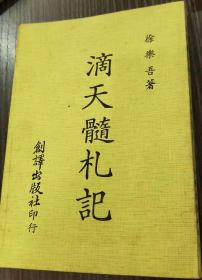 徐樂吾著
滴天髓札記
創譯出版社印行